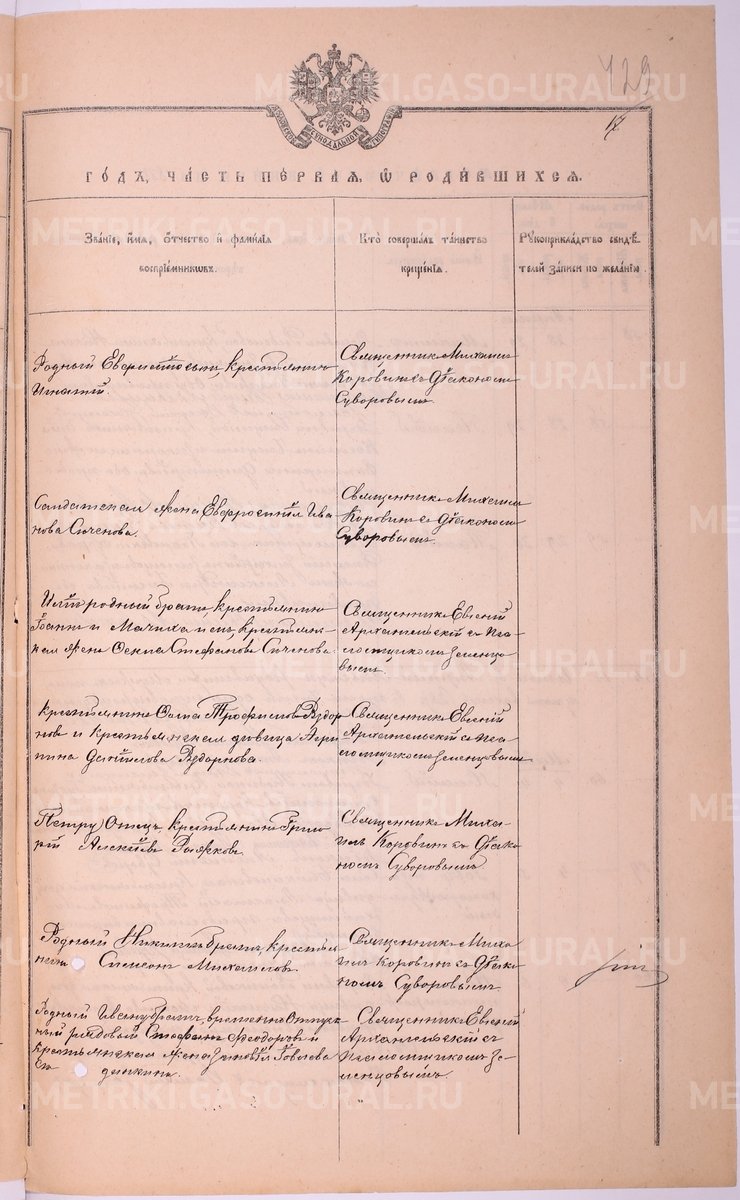 METRIKI.GASO-URAL.RU
429
17
МОСКОВСКОЙ СѴНОДАЛЬНОЙ ТИПОГРАФІИ
ГОДЪ, ЧАСТЬ ПЕРВАЯ, Ѿ РОДИВШИХСЯ.
Званіе, имя, отчество и фамилія
воспріемниковъ.
Кто совершалъ таинство
крещенія.
Рукоприкладство свидѣ-
телей записи по желанію.
Родный сынъ, крестьянинъ
Игнатій.
Священникъ Михаилъ
Коровинъ съ Діакономъ
Суворовымъ.
Солдатская жена Евфросинія Ива
нова Сиченова.
Священникъ Михаилъ
Коровинъ съ Діакономъ
Суворовымъ.
родный братъ, крестьянинъ
Іоаннъ и Мачиха ихъ, крестьян-
ская жена Стефанова Сиченова.
Священникъ Евгеній
Архангельскій съ Пса
ломщикомъ Зеленцо
вымъ.
крестьянинъ Ѳома Трофимовъ
новъ и крестьянская дѣвица Агри
пина Даніилова
Священникъ Евгеній
Архангельскій съ Пса
ломщикомъ Зеленцовымъ
Петру Отецъ, крестьянинъ Григо
рій Алексѣевъ Рыжковъ.
Священникъ Миха-
илъ Коровинъ съ Діако
номъ Суворовымъ.
Родный Никитѣ братъ, крестья
нинъ Симеонъ Михаиловъ.
Священникъ Миха
илъ Коровинъ съ Діако
номъ Суворовымъ
Родный Ивану братъ, временно Отпуск
ный рядовый Стефанъ Ѳеодоровъ и
Крестьянская жена Зиновія
Священникъ Евгеній
Архангельскій съ
Псаломщикомъ Зе-
ленцовымъ.